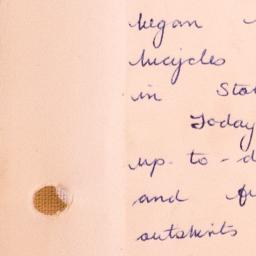 began
bicycles
in
Today
up-to-d
and
outskirts